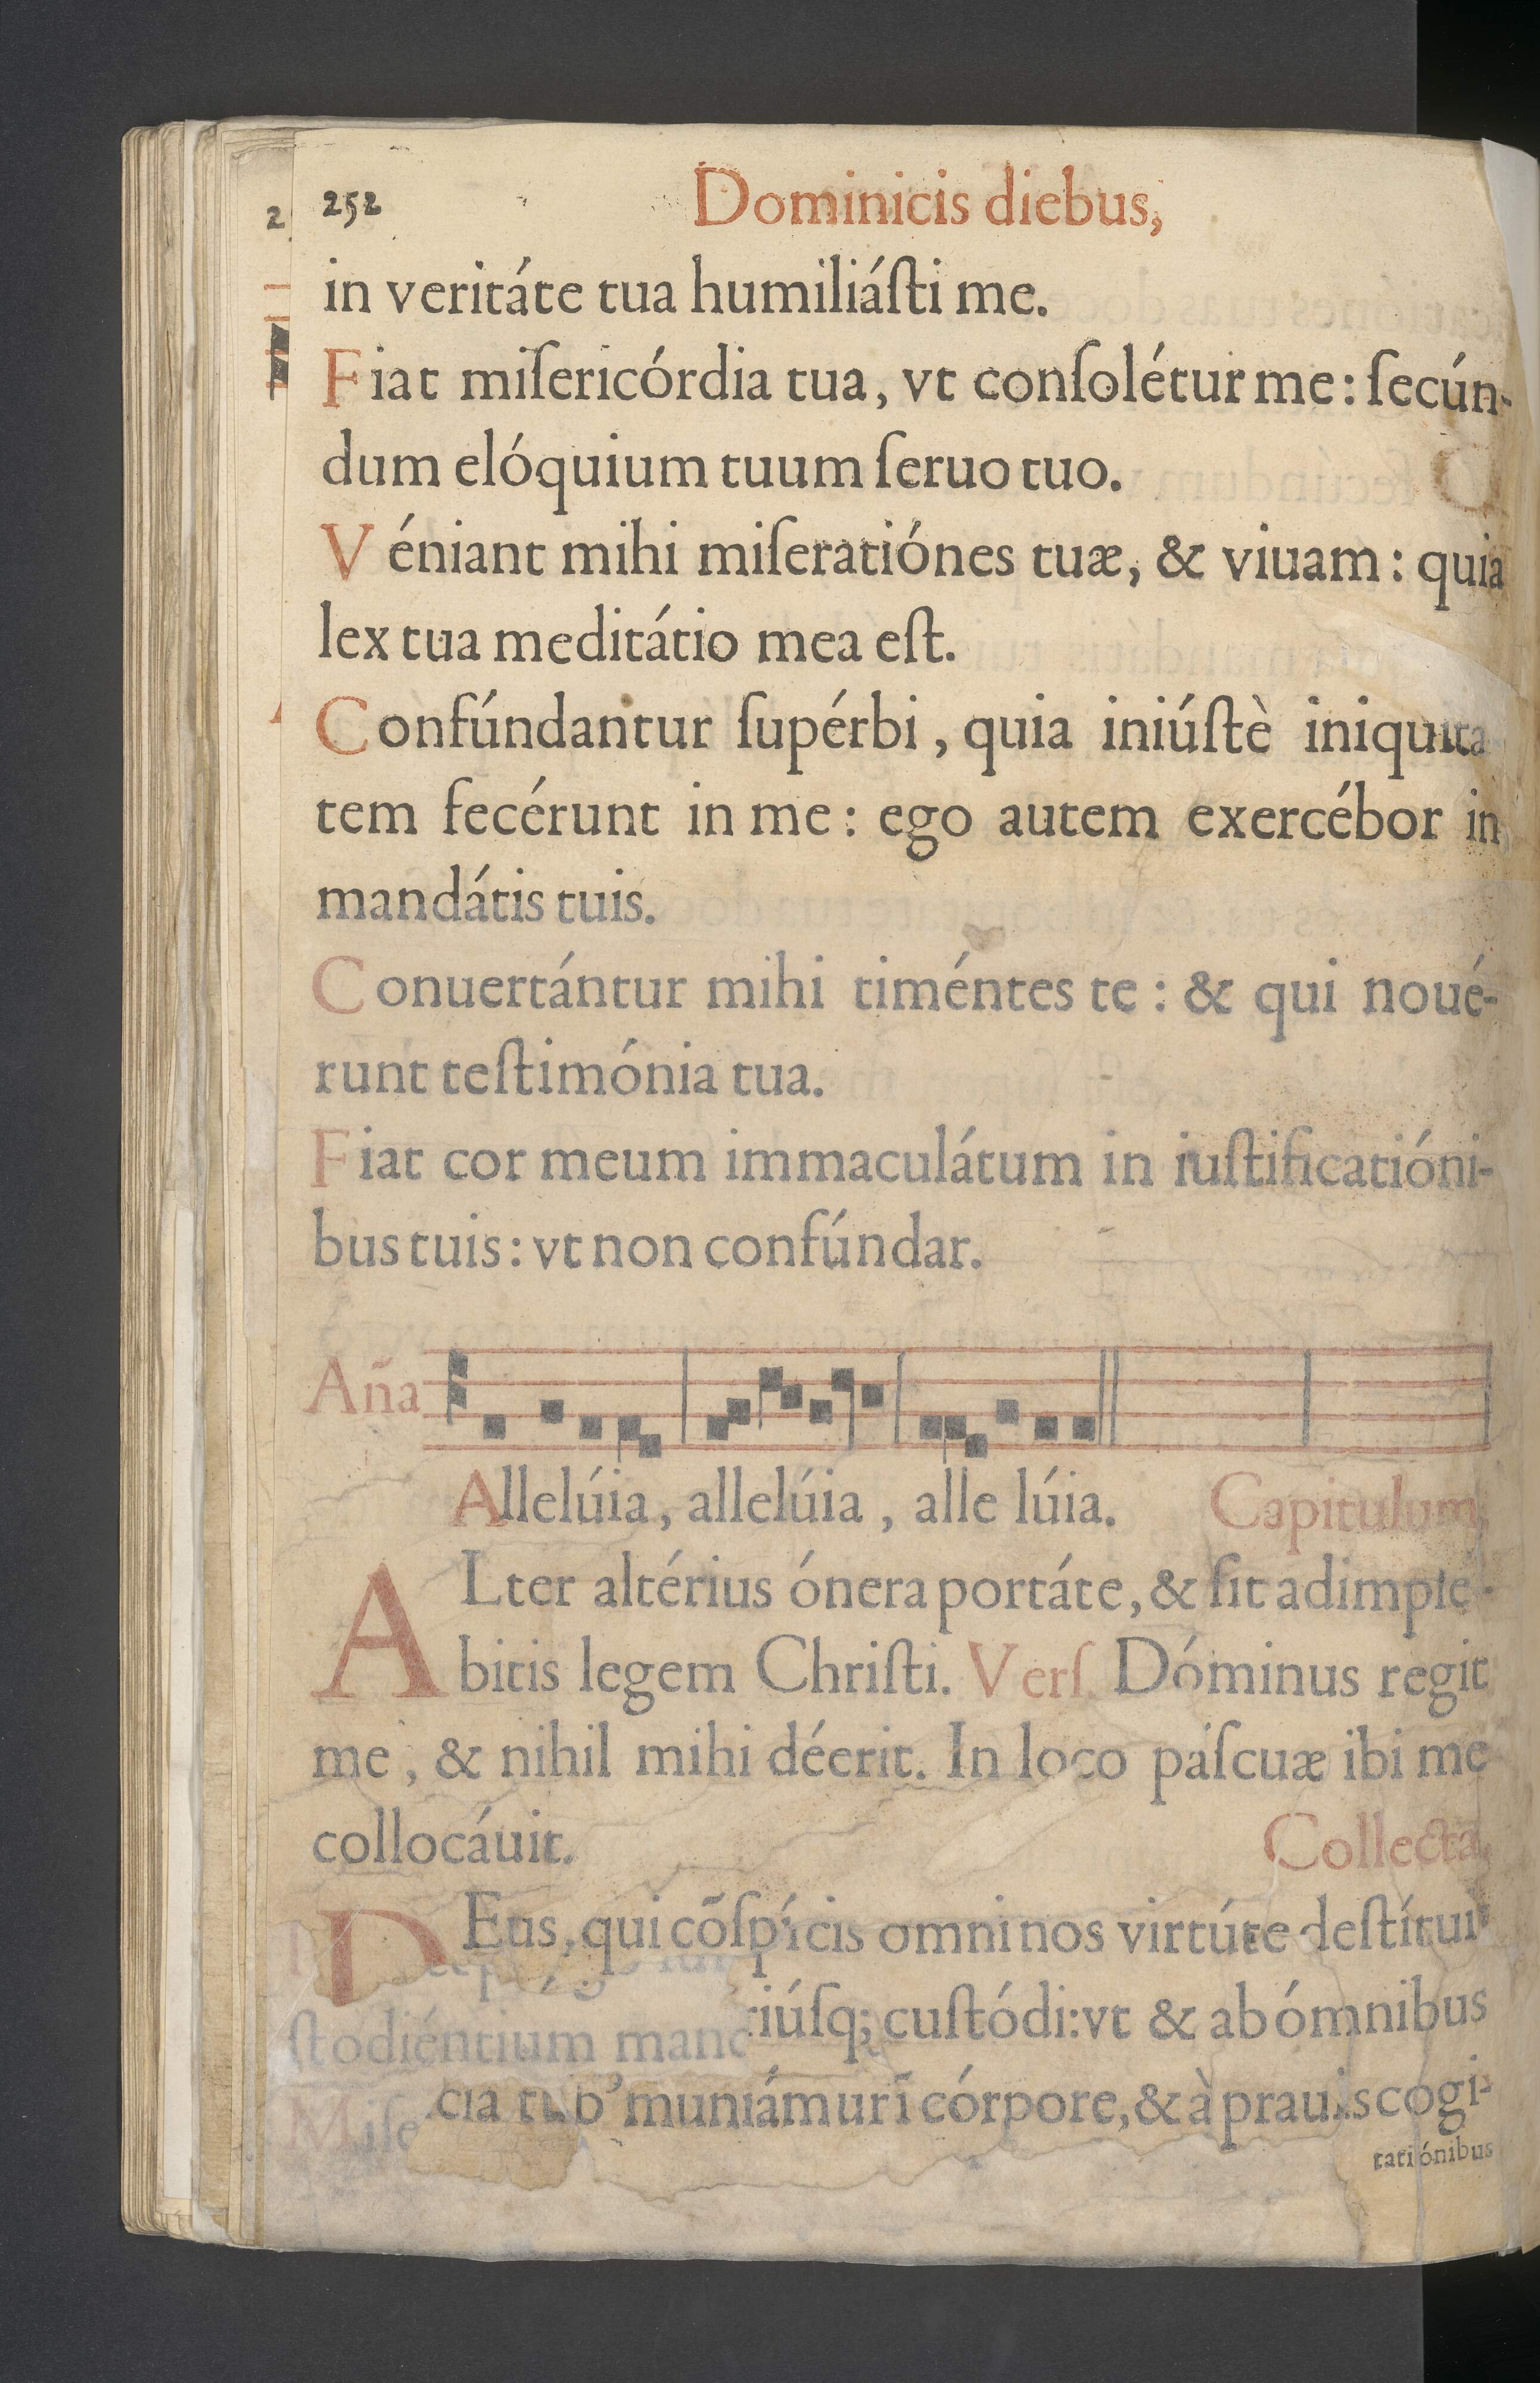 252 Dominicis diebus,
in veritáte tua humiliáſti me.
Fiat miſericórdia tua, vt conſolétur me: ſecún-
dum elóquium tuum ſeruo tuo.
Véniant mihi miſeratiónes tuæ, & viuam: quia
lex tua meditátio mea eſt.
Confúndantur ſupérbi, quia iniúſtè iniquita
tem fecérunt in me: ego autem exercébor in
mandátis tuis.
Conuertántur mihi timéntes te: & qui noué-
runt teſtimónia tua.
Fiat cor meum immaculátum in iuſtificatióni-
bus tuis: vt non confúndar.
Añа
Allelúia, allelúia, alle lúia. Capitulum,
ALter altérius ónera portáte, & ſit adimplé-
bitis legem Chriſti. Verſ. Dóminus regit
me, & nihil mihi déerit. In loco páſcuæ ibi me
collocáuit. Collecta,
DEus, qui cõſpícis omni nos virtúte deſtítui
ſtodiéntium riúſq; cuſtódi: vt & ab ómnibus
muniámur ī córpore, & à prauis cogi-
tatiónibus